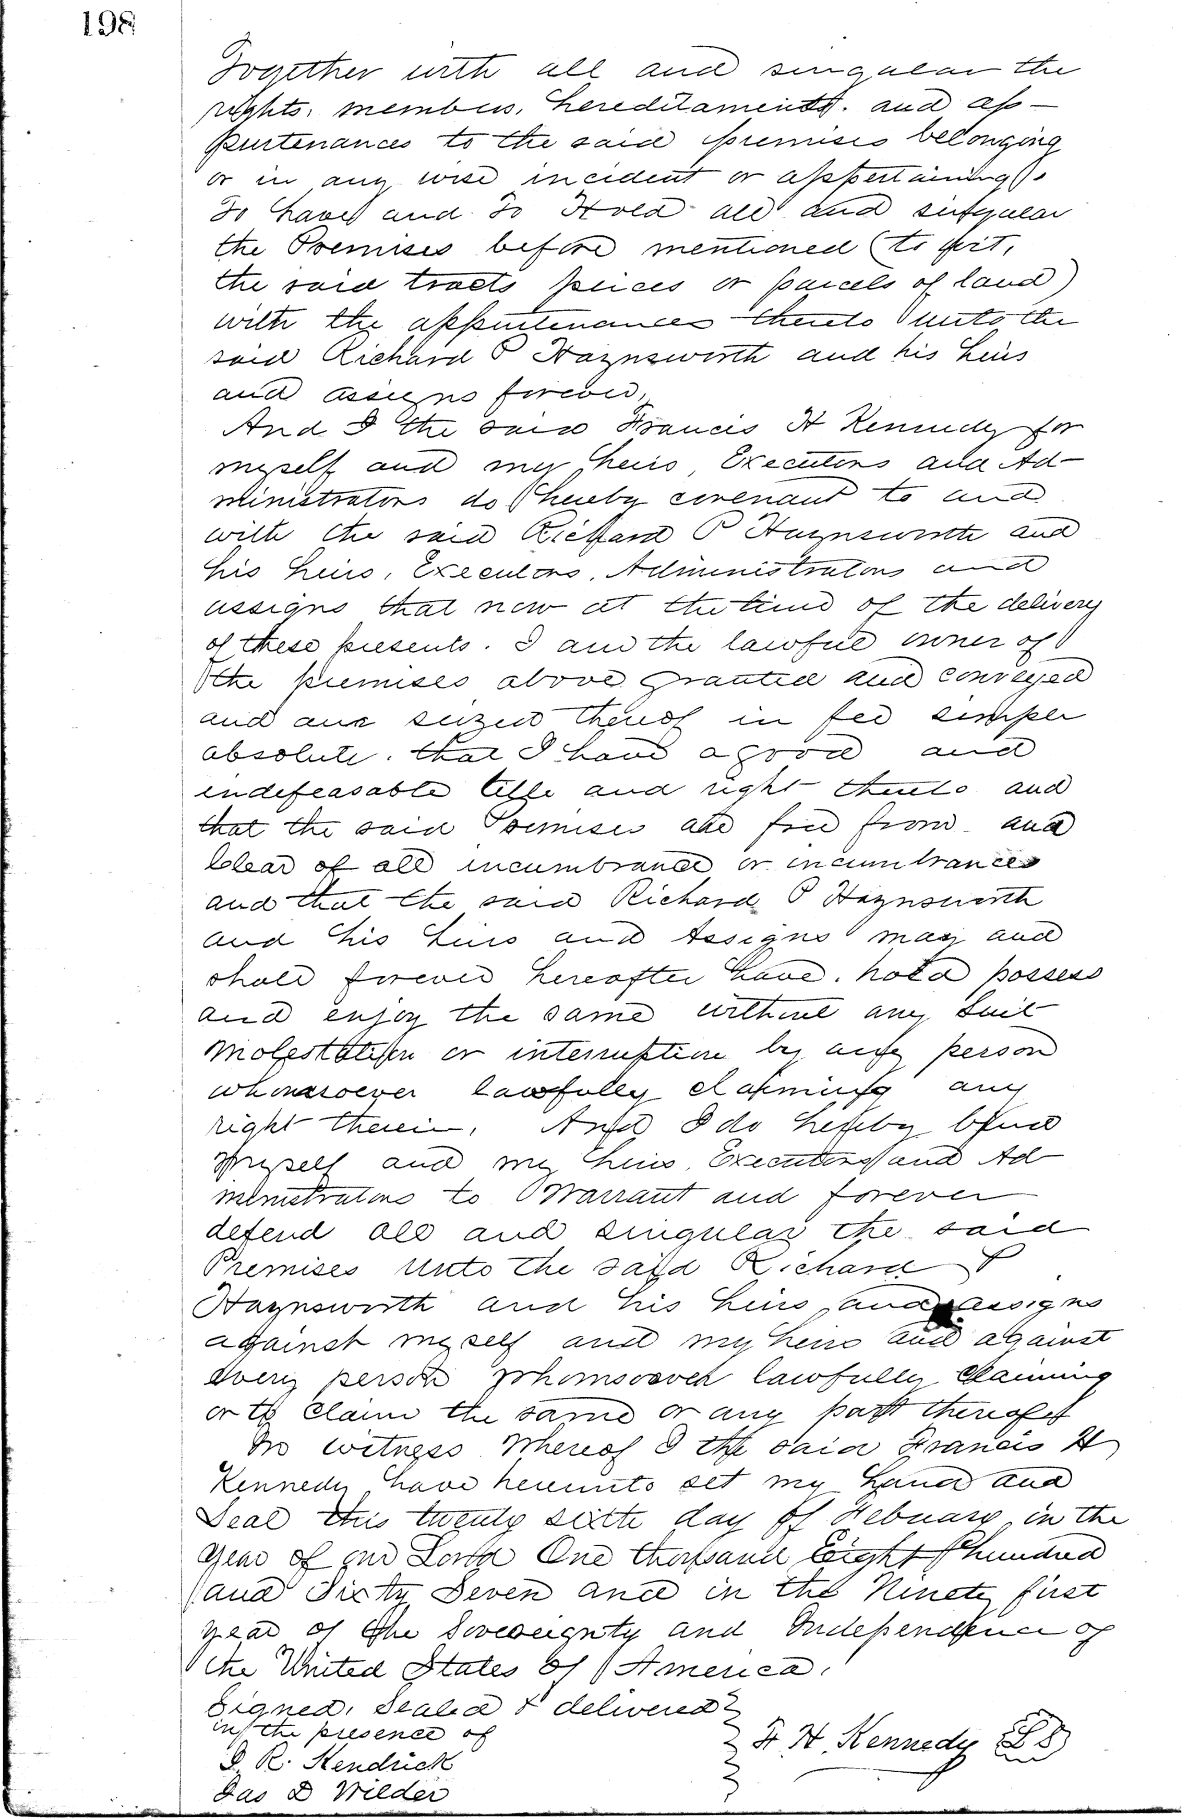 198
Together with all and singular the
rights, members, hereditaments. and ap-
purtenances to the said premises belonging
or in any wise incident or appertaining.
To have and To Hold all and singular
the Premises before mentioned (to wit,
the said tracts peices or parcels of land)
with the appurtenances thereto unto the
said Richard P Haynsworth and his heirs
and assigns forever,
And I the said Francis H Kennedy for
myself and my heirs, Executors and Ad-
ministrators do hereby covenant to and
with the said Richard P Haynsworth and
his heirs, Executors, Administrators and
assigns that now at the time of the delivery
of these presents. I am the lawful owner of
the premises above granted and conveyed
and am seized thereof in fee simple
absolute. that I have a good and
indefeasable title and right thereto and
that the said Premises are free from and
Clear of all incumbrance or incumbrances
and that the said Richard P Haynsworth
and his heirs and Assigns may and
shall forever hereafter have. hold possess
and enjoy the same without any Suit
Molestation or interruption by any person
whomsoever lawfully claiming any
right therein, And I do hereby bind
Myself and my heirs, Executors and Ad
ministrators to Warrant and forever
defend all and singular the said
Premises unto the said Richard P
Haynsworth and his heirs and assigns
against myself and my heirs and against
every person whomsoever lawfully Claiming
or to Claim the same or any part thereof
In witness Whereof I the said Francis H
Kennedy have hereunto set my hand and
Seal this twenty sixth day of Febuary in the
Year of our Lord One thousand Eight hundred
and Sixty Seven and in the Ninety first
year of the Sovereignty and Independence of
the United States of America.
Signed, Sealed & delivered
in the presence of
F. H. Kennedy LS
J. R. Kendrick
Jas D Wilder